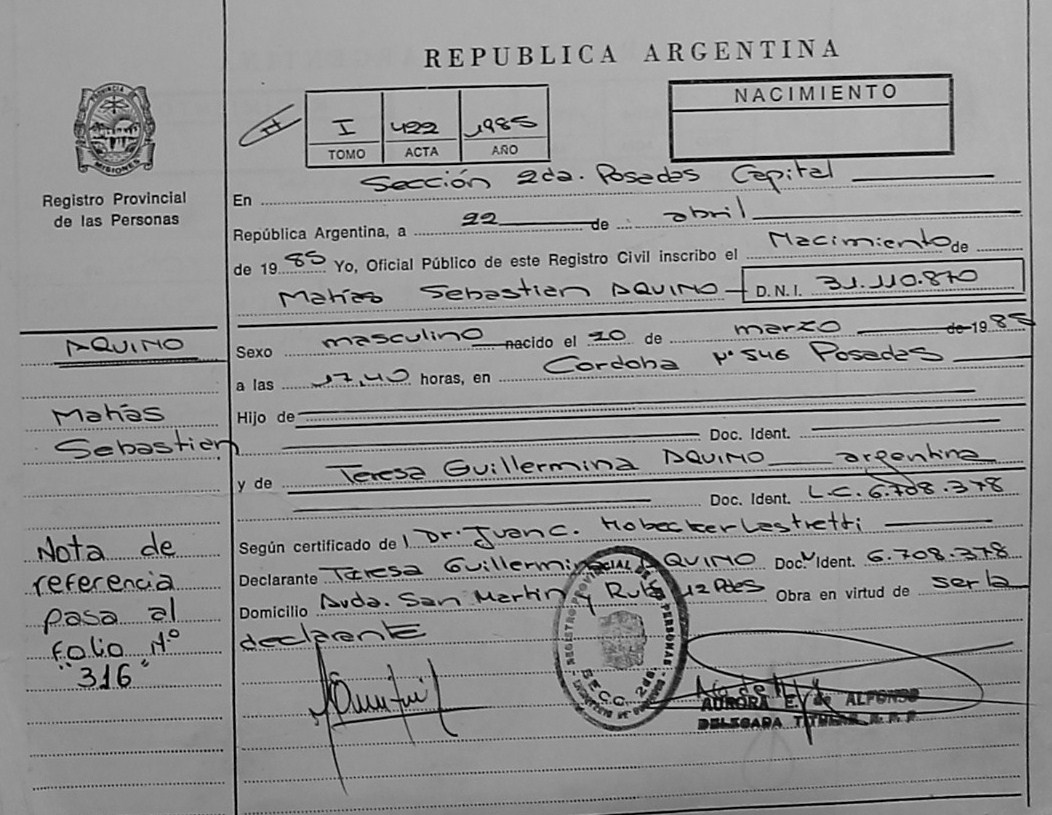 REPUBLICA ARGENTINA
PROVINCIA DE
MISIONES
Registro Provincial
de las Personas
I 422 1985
TOMO ACTA AÑO
NACIMIENTO
En Sección 2da. Posadas Capital
República Argentina, a 22 de abril
de 1985 Yo, Oficial Público de este Registro Civil inscribo el Nacimiento de
Matías Sebastian AQUINO D.N.I. 31.110.870
Sexo masculino nacido el 20 de marzo de 1985
a las 17,40 horas, en Cordoba Nº 546 Posadas
Hijo de
Doc. Ident.
y de Teresa Guillermina AQUINO argentina
Doc. Ident. L.C. 6.708.378
Según certificado de Dr. Juan C.
Declarante Teresa Guillermina AQUINO Doc. Ident. 6.708.378
Domicilio Avda. San Martin y Ruta 12 Pdas Obra en virtud de ser la
declarante
AQUINO
Matías
Sebastian
Nota de
referencia
pasa al
folio Nº
"316"
REGISTRO PROVINCIAL DE LAS PERSONAS
SECC. 2da.
AURORA E. de ALFONSO
DELEGADA TITULAR R.P.P.